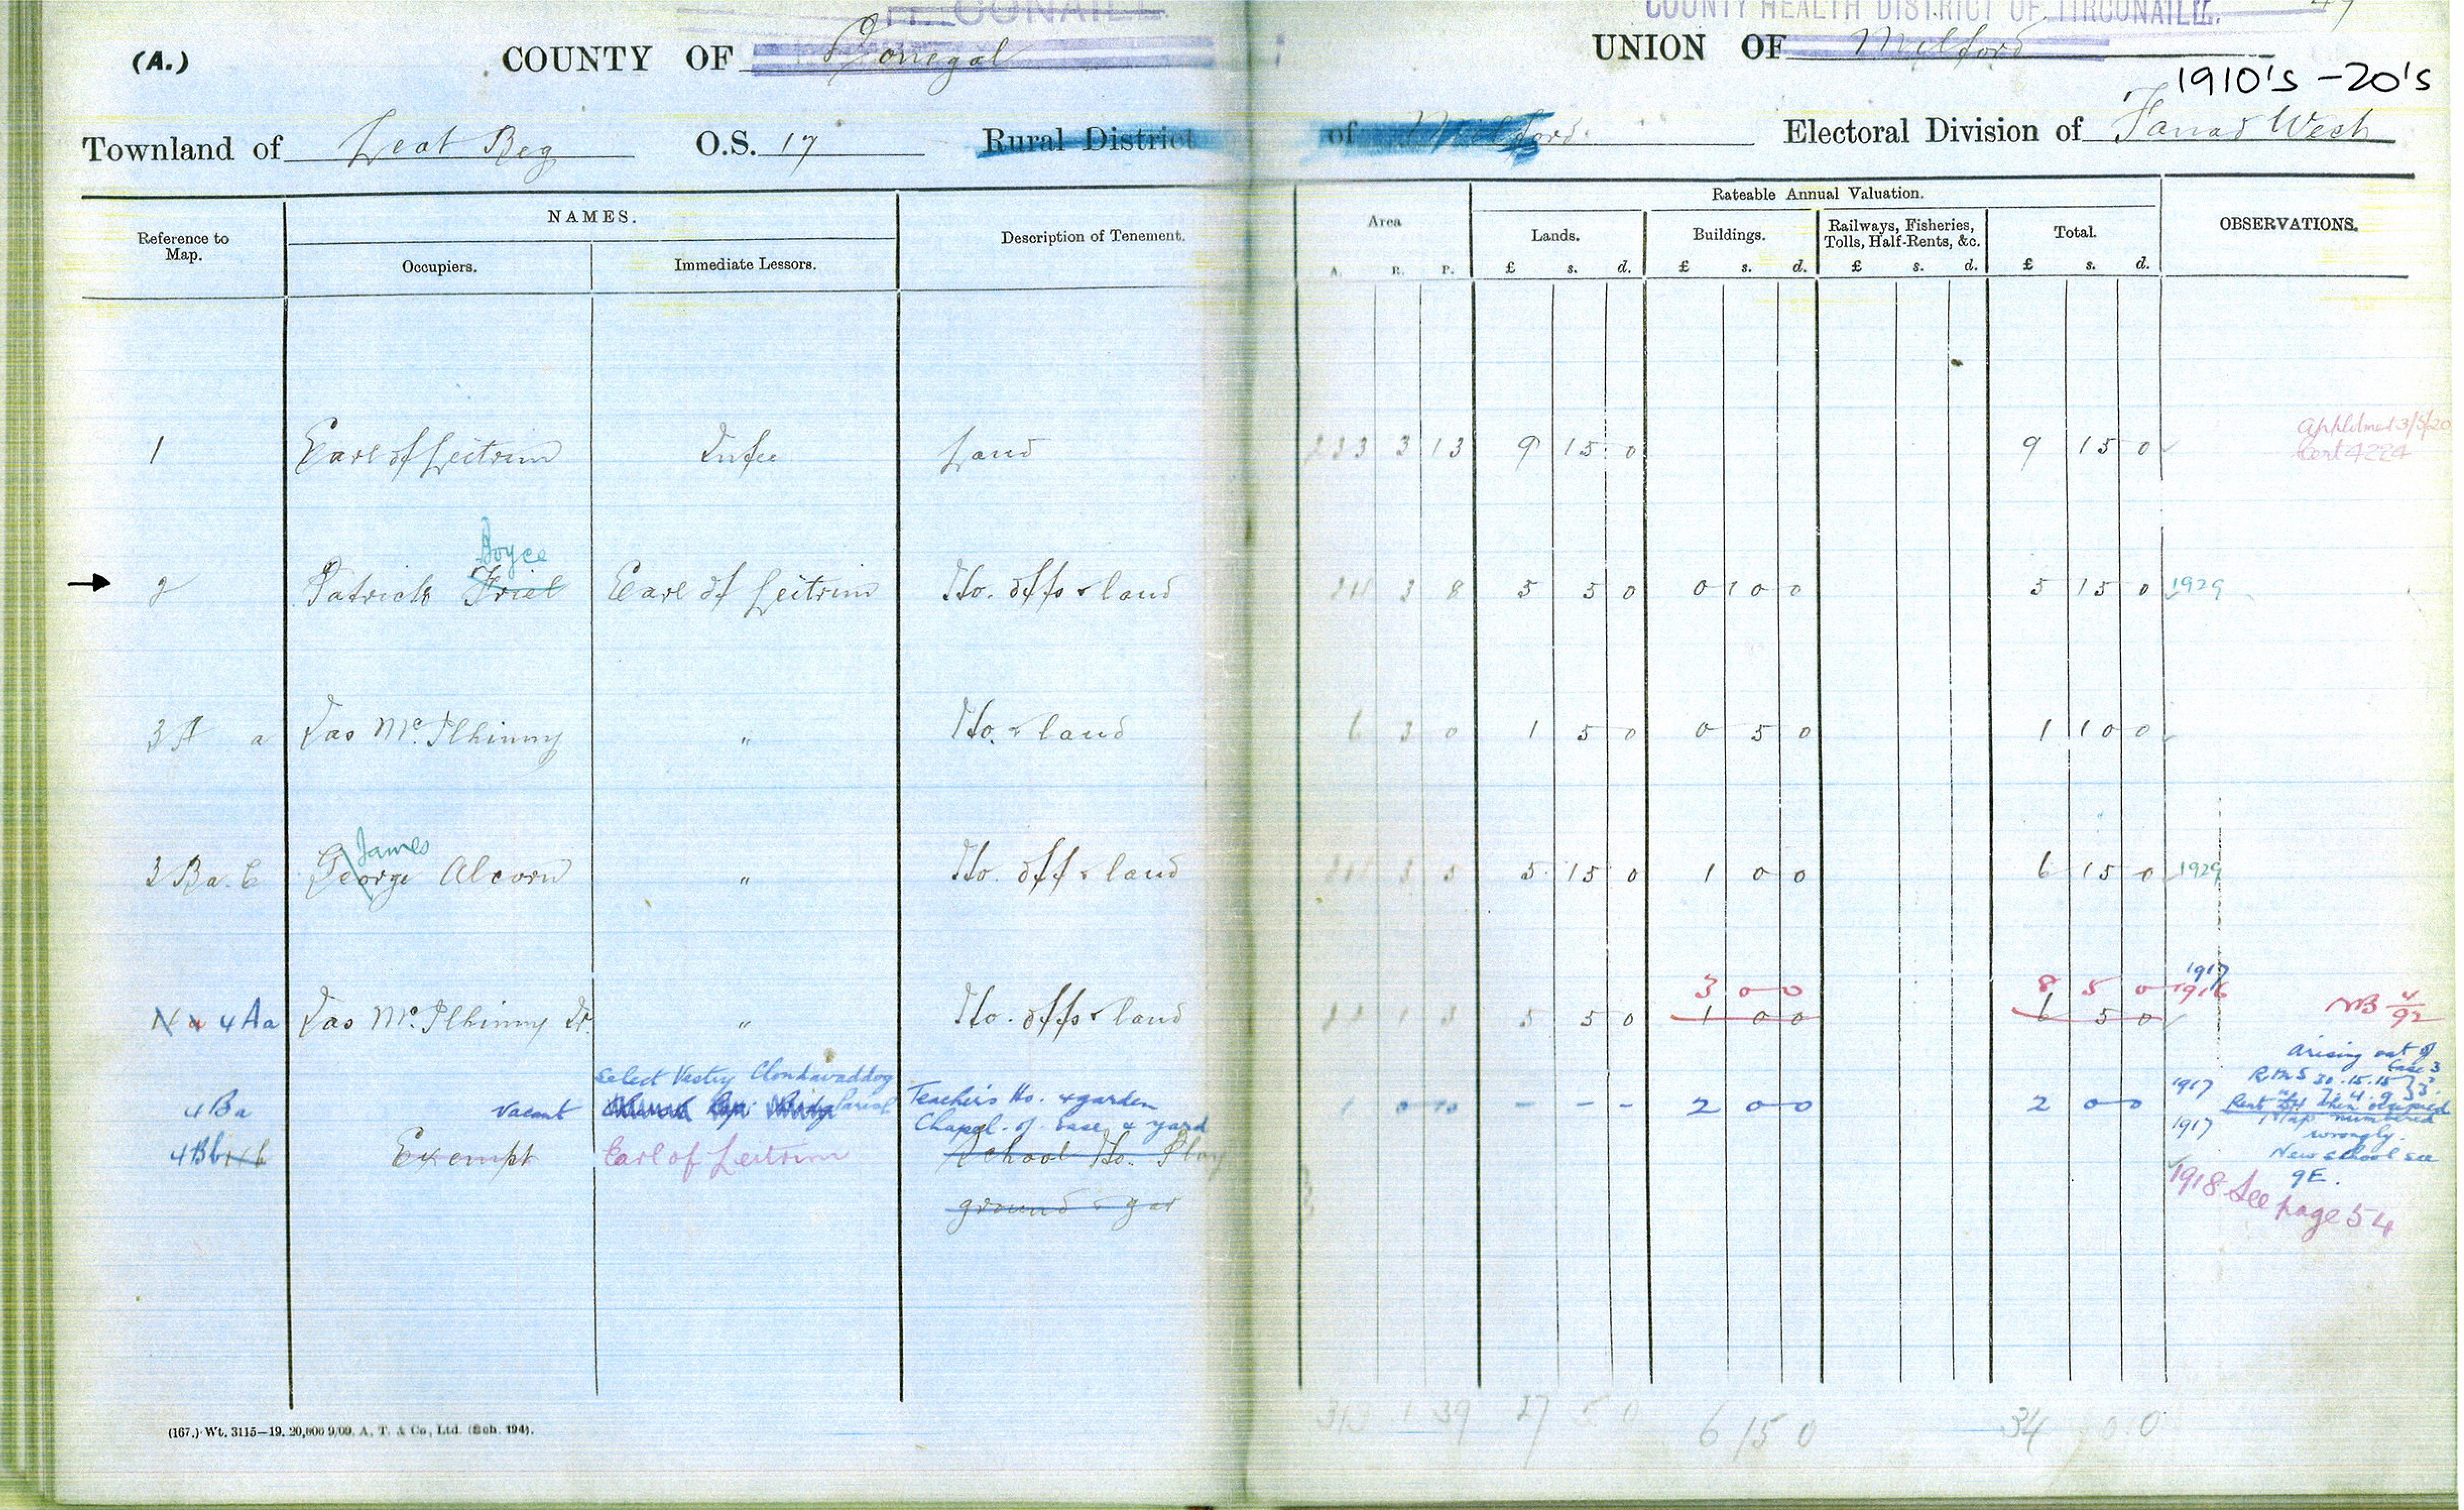 CONAILL
COUNTY HEALTH DISTRICT OF TIRCONAILL.
(A.) COUNTY OF Donegal UNION OF Milford
1910's - 20's
Townland of Leat Beg O.S. 17 Rural District of Milford Electoral Division of Fanad West
Reference to Map. NAMES. Description of Tenement. Area Rateable Annual Valuation. OBSERVATIONS.
Occupiers. Immediate Lessors. A. R. P. Lands. Buildings. Railways, Fisheries, Tolls, Half-Rents, &c. Total.
£ s. d. £ s. d. £ s. d. £ s. d.
1 Earl of Leitrim In fee Land 3 13 9 15 0 9 15 0
3/5/20
Cert 4224
Boyce
→ 2 Patrick Friel Earl of Leitrim Ho. offs & land 3 8 5 5 0 0 10 0 5 15 0 1929
3 A a Jas McIlhinny " Ho. & land 6 3 0 1 5 0 0 5 0 1 10 0
James
3 B a. b George Alcorn " Ho. off & land 3 5 5 15 0 1 0 0 6 15 0 1929
3 0 0 8 5 0 1917 1916
4 A a Jas McIlhinny Jr. " Ho. offs & land 1 3 5 5 0 1 0 0 6 5 0 NB 4/92
Select Vestry Clondavaddog
4 Ba vacant Parish Teacher's Ho. & garden 1 0 10 - - - 2 0 0 2 0 0 1917
Arising out of
Case 3
Chapel of ease & yard
4 Bb Exempt Earl of Leitrim School Ho. Play
ground & gar
1917
Map numbered
wrongly.
New school see
9E.
1918 See page 54
313 1 39 27 5 0 6 15 0 34 0 0
(167.) Wt. 3115—19. 20,000 9/09. A. T. & Co., Ltd. (Sch. 194).